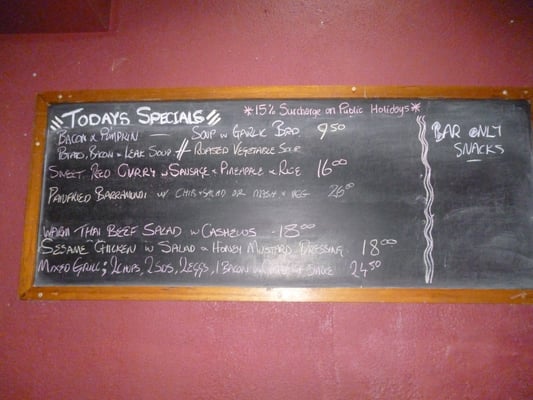 Todays Specials
*15% Surcharge on Public Holidays*
Bacon & Pumpkin — Soup w Garlic Brd. 9.50
Potato, Bacon & Leak Soup # Roasted Vegetable Soup
Sweet Red Curry w Sausage & Pineapple & Rice 16.00
Panfried Barramundi w Chip & Salad or Mash & Veg 26.00
Warm Thai Beef Salad w Cashews - 18.00
Sesame Chicken w Salad & Honey Mustard Dressing. 18.00
Mixed Grill; 2 Chops, 2 Sos, 2 Eggs, 1 Bacon w Sauce 24.50
Bar Only
Snacks